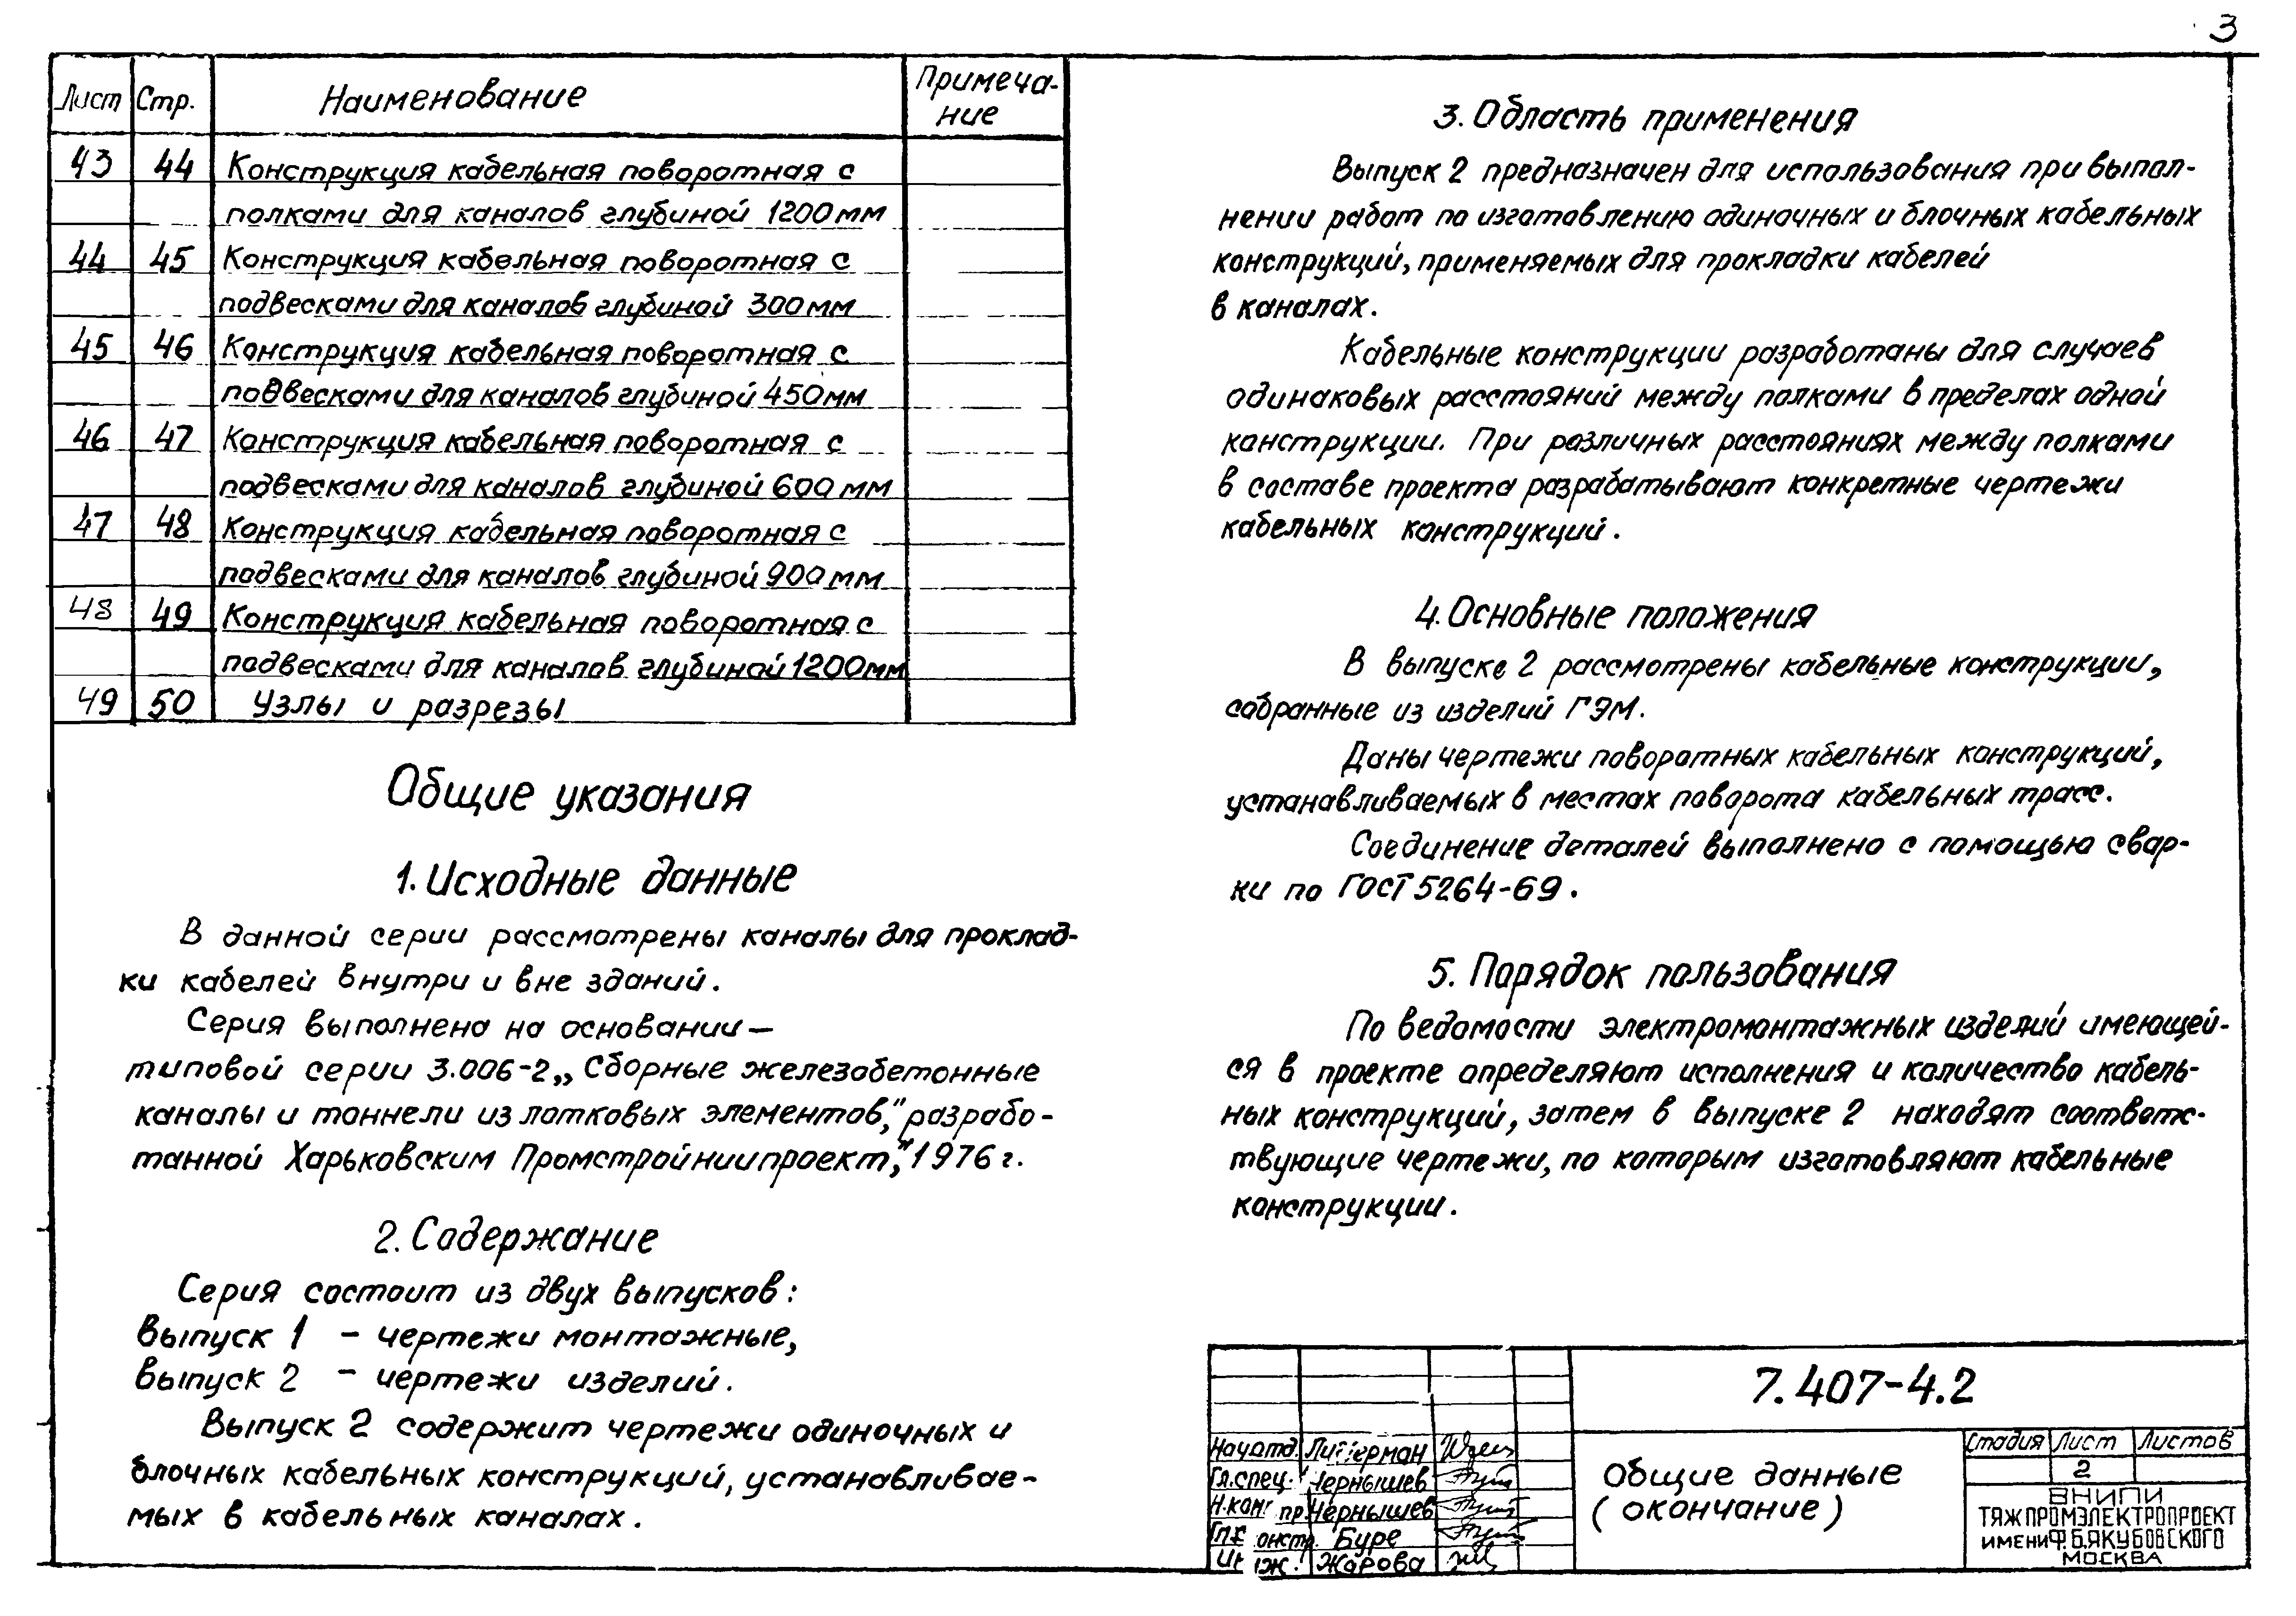 3
Лист Стр. Наименование Примеча-
ние
43 44 Конструкция кабельная поворотная с
полками для каналов глубиной 1200 мм
44 45 Конструкция кабельная поворотная с
подвесками для каналов глубиной 300 мм
45 46 Конструкция кабельная поворотная с
подвесками для каналов глубиной 450 мм
46 47 Конструкция кабельная поворотная с
подвесками для каналов глубиной 600 мм
47 48 Конструкция кабельная поворотная с
подвесками для каналов глубиной 900 мм
48 49 Конструкция кабельная поворотная с
подвесками для каналов глубиной 1200 мм
49 50 Узлы и разрезы
Общие указания
1. Исходные данные
В данной серии рассмотрены каналы для проклад-
ки кабелей внутри и вне зданий.
Серия выполнена на основании —
типовой серии 3.006-2 „Сборные железобетонные
каналы и тоннели из лотковых элементов," разрабо-
танной Харьковским Промстройниипроект," 1976 г.
2. Содержание
Серия состоит из двух выпусков:
выпуск 1 - чертежи монтажные,
выпуск 2 - чертежи изделий.
Выпуск 2 содержит чертежи одиночных и
блочных кабельных конструкций, устанавливае-
мых в кабельных каналах.
3. Область применения
Выпуск 2 предназначен для использования при выпол-
нении работ по изготовлению одиночных и блочных кабельных
конструкций, применяемых для прокладки кабелей
в каналах.
Кабельные конструкции разработаны для случаев
одинаковых расстояний между полками в пределах одной
конструкции. При различных расстояниях между полками
в составе проекта разрабатывают конкретные чертежи
кабельных конструкций.
4. Основные положения
В выпуске 2 рассмотрены кабельные конструкции,
собранные из изделий ГЭМ.
Даны чертежи поворотных кабельных конструкций,
устанавливаемых в местах поворота кабельных трасс.
Соединение деталей выполнено с помощью свар-
ки по ГОСТ 5264-69.
5. Порядок пользования
По ведомости электромонтажных изделий имеющей-
ся в проекте определяют исполнения и количество кабель-
ных конструкций, затем в выпуске 2 находят соответс-
твующие чертежи, по которым изготовляют кабельные
конструкции.
7.407-4.2
Нач.отд.
Гл.спец. Чернышев
Н.конт пр. Чернышев
Гл.к онстр. Буре
Ин ж. Жарова
Общие данные
(окончание)
Стадия Лист Листов
2
ВНИПИ
ТЯЖПРОМЭЛЕКТРОПРОЕКТ
ИМЕНИ Ф.Б.ЯКУБОВСКОГО
МОСКВА